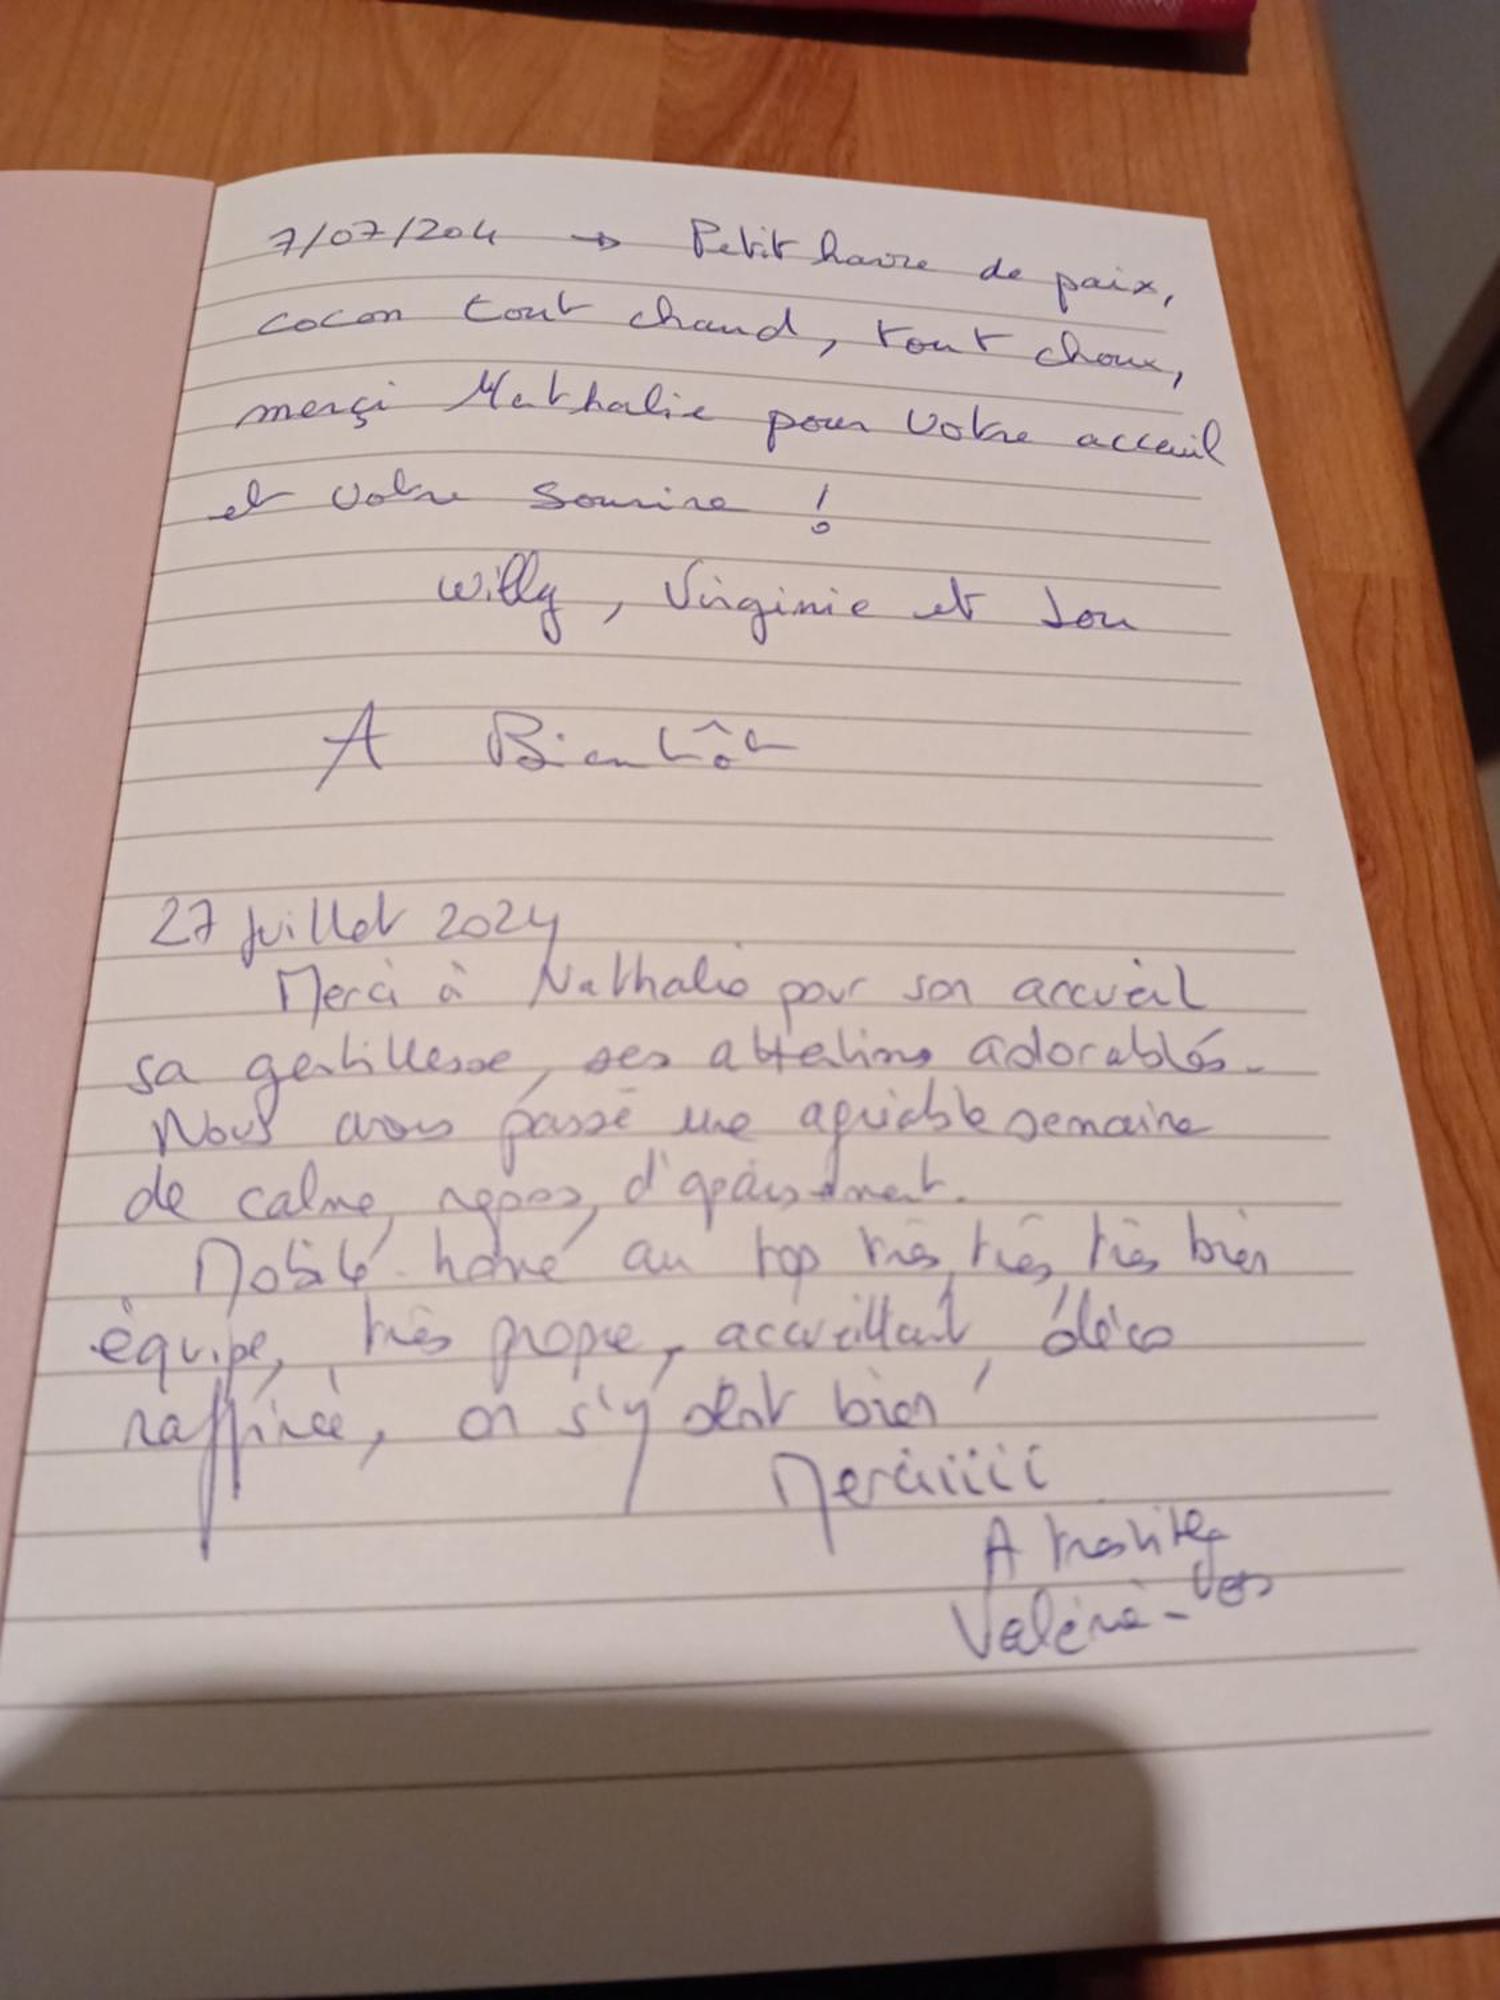 7/07/204 → Petit havre de paix,
cocon tout chaud, tout choux,
merçi Nathalie pour votre acceuil
et votre sourire !
Willy, Virginie et Lou
A Bientôt
27 Juillet 2024
Merci à Nathalie pour son accueil
sa gentillesse, ses attentions adorables.
Nous avons passé une agréable semaine
de calme, repos, d'apaisement.
Mobile home au top très, très, très bien
équipé, très propre, accueillant, déco
raffinée, on s'y sent bien
Merciiiii
A très vite
Valérie -